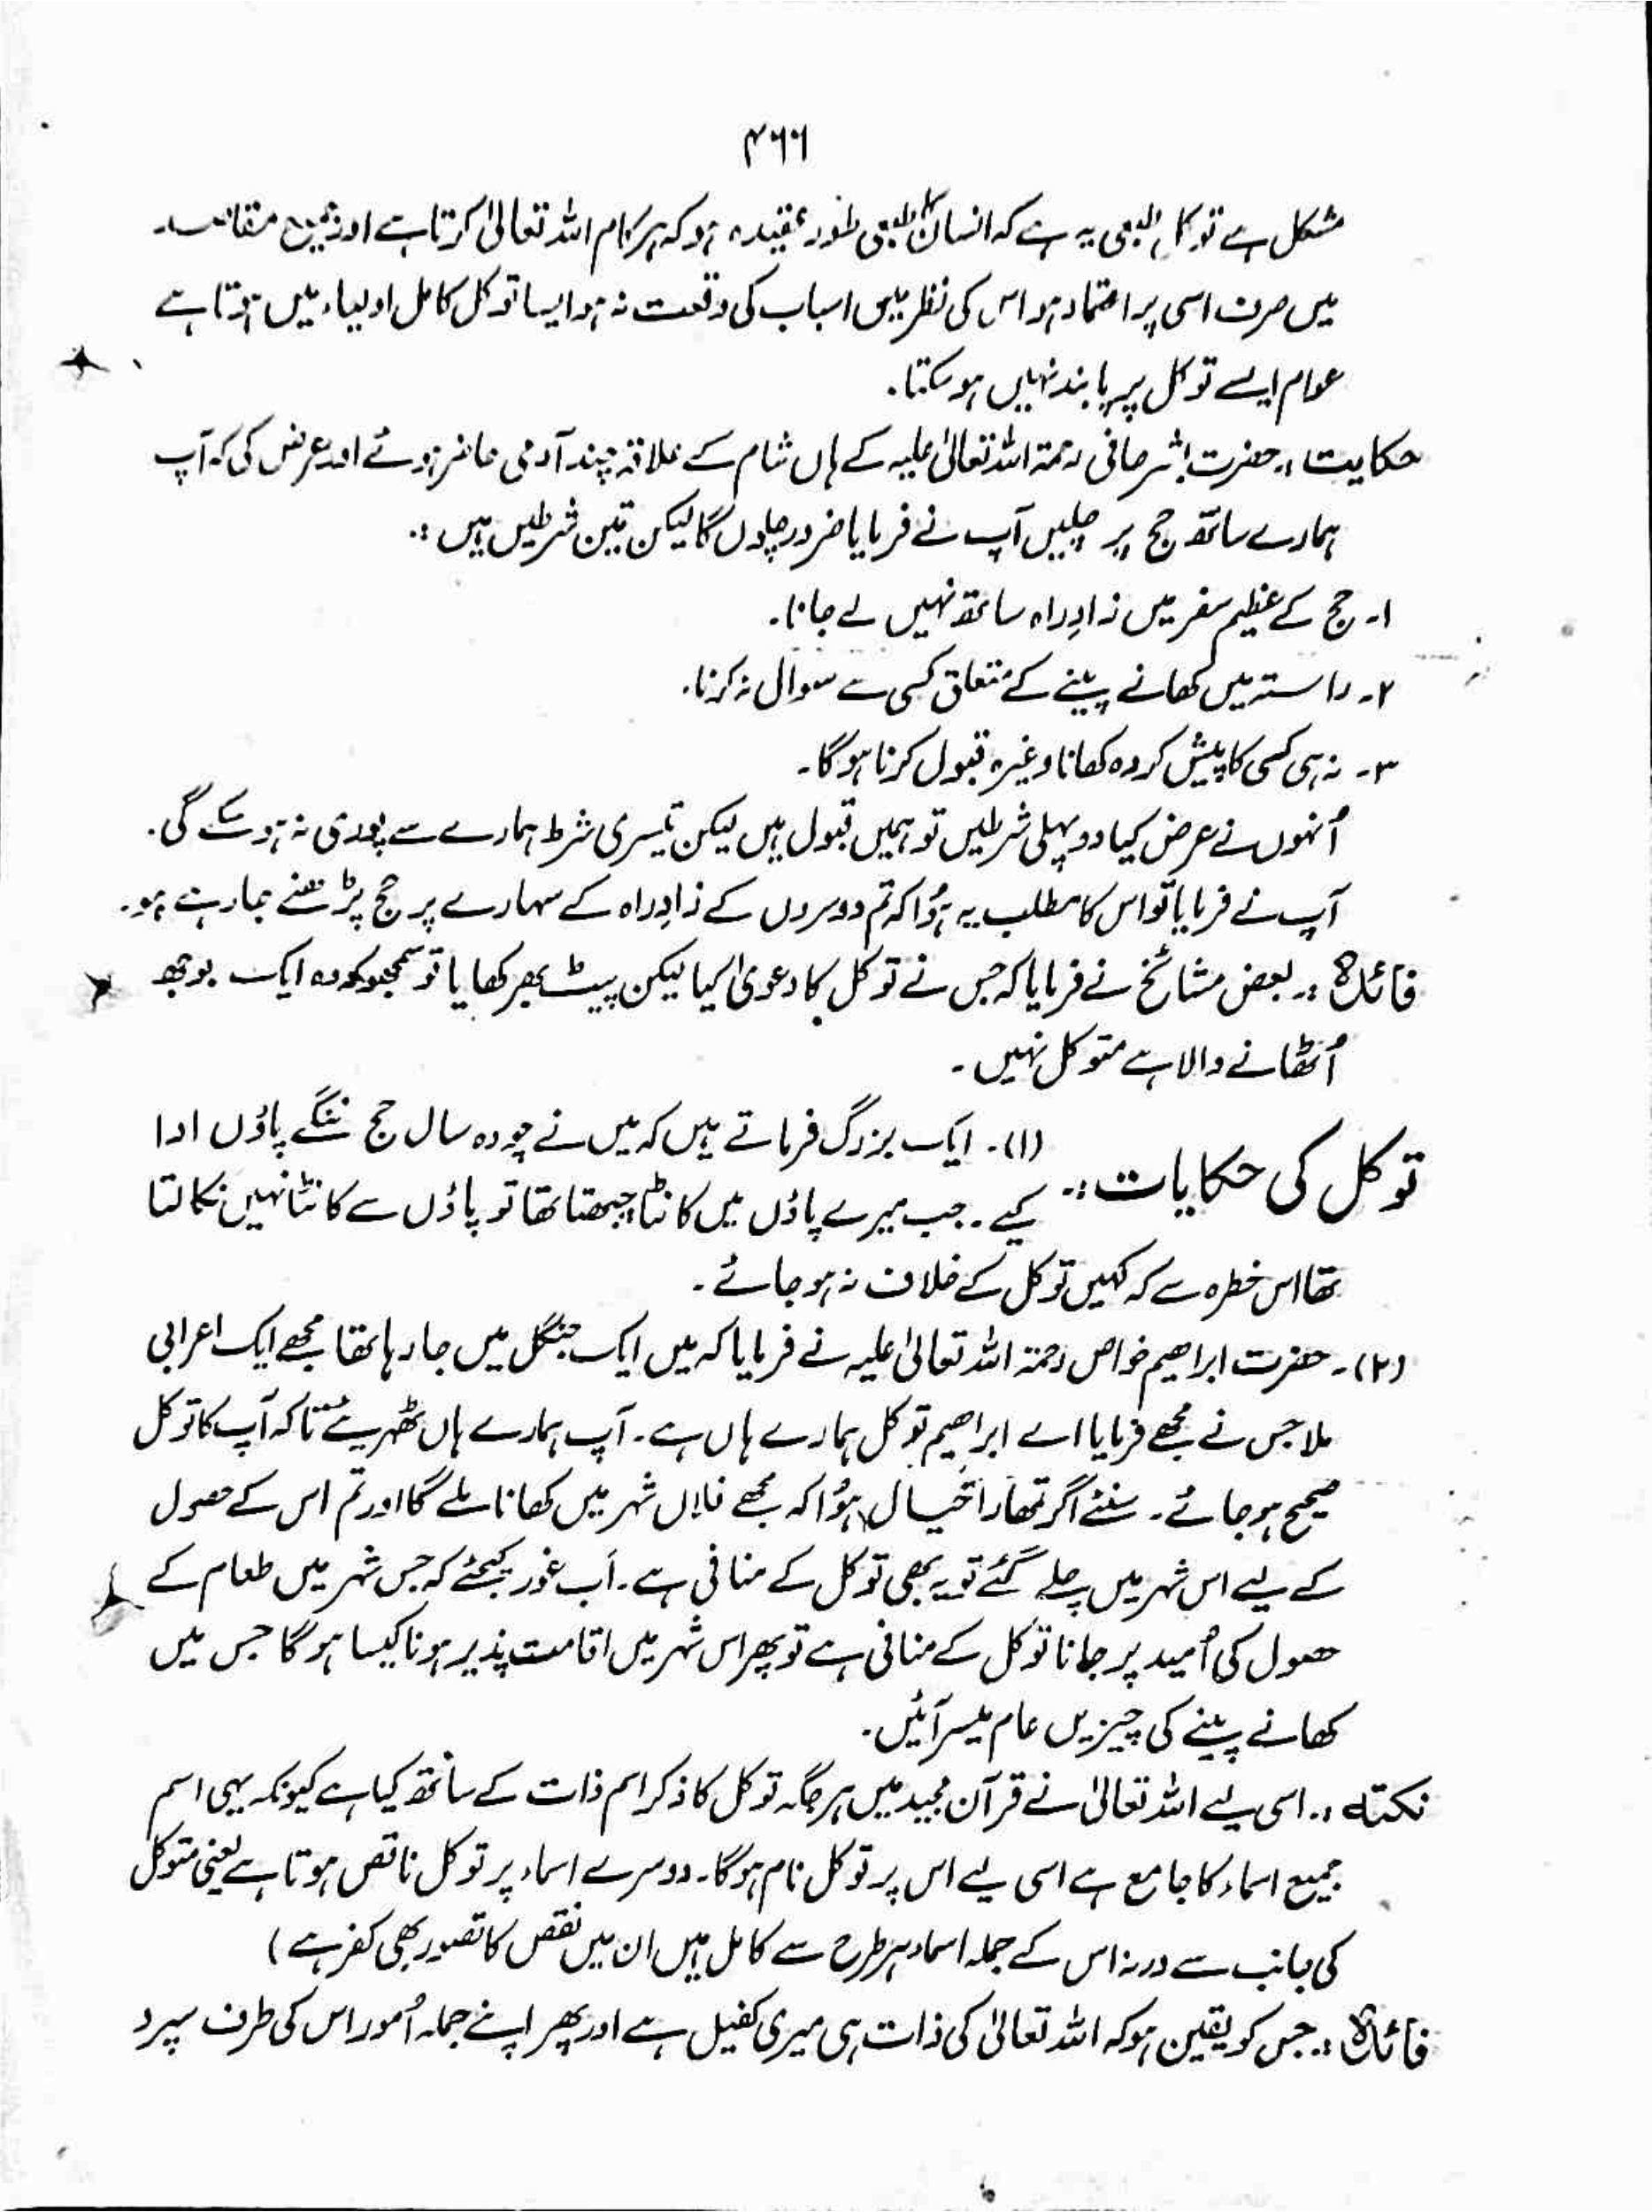 ۴۶۶
مشکل ہے توکل طبعی یہ ہے کہ انسان کا طبعی طور عقیدہ ہو کہ ہر کام اللہ تعالیٰ کرتا ہے اور جمیع مقاصد
میں صرف اسی پر اعتماد ہو اس کی نظر میں اسباب کی وقعت نہ ہو ایسا توکل کامل اولیاء میں ہوتا ہے
عوام ایسے توکل پر پابند نہیں ہو سکتا۔
حکایت :۔ حضرت بشر حافی رحمۃ اللہ تعالیٰ علیہ کے ہاں شام کے علاقہ چند آدمی حاضر ہوئے اور عرض کی کہ آپ
ہمارے ساتھ حج پر چلیں آپ نے فرمایا ضرور چلوں گا لیکن تین شرطیں ہیں :۔
۱۔ حج کے عظیم سفر میں زادِ راہ ساتھ نہیں لے جانا۔
۲۔ راستہ میں کھانے پینے کے متعلق کسی سے سوال نہ کرنا۔
۳۔ نہ ہی کسی کا پیش کردہ کھانا وغیرہ قبول کرنا ہو گا۔
اُنہوں نے عرض کیا دو پہلی شرطیں تو ہمیں قبول ہیں لیکن تیسری شرط ہمارے سے پوری نہ ہو سکے گی۔
آپ نے فرمایا تو اس کا مطلب یہ ہؤا کہ تم دوسروں کے زادِ راہ کے سہارے پر حج پڑھنے جا رہے ہو۔
فائدہ :۔ بعض مشائخ نے فرمایا کہ جس نے توکل کا دعویٰ کیا لیکن پیٹ بھر کھایا تو سمجھو کہ وہ ایک بوجھ
اُٹھانے والا ہے متوکل نہیں۔
توکل کی حکایات :۔ (۱)۔ ایک بزرگ فرماتے ہیں کہ میں نے چودہ سال حج ننگے پاؤں ادا
کیے۔ جب میرے پاؤں میں کانٹا چبھتا تھا تو پاؤں سے کانٹا نہیں نکالتا
تھا اس خطرہ سے کہ کہیں توکل کے خلاف نہ ہو جائے۔
(۲)۔ حضرت ابراھیم خواص رحمۃ اللہ تعالیٰ علیہ نے فرمایا کہ میں ایک جنگل میں جا رہا تھا مجھے ایک اعرابی
ملا جس نے مجھے فرمایا اے ابراھیم توکل ہمارے ہاں ہے۔ آپ ہمارے ہاں ٹھہریئے تاکہ آپ کا توکل
صحیح ہو جائے۔ سنئے اگر تمھارا خیال ہؤا کہ مجھے فلاں شہر میں کھانا ملے گا اور تم اس کے حصول
کے لیے اس شہر میں چلے گئے تو یہ بھی توکل کے منافی ہے۔ اَب غور کیجئے کہ جس شہر میں طعام کے
حصول کی اُمید پر جانا توکل کے منافی ہے تو پھر اس شہر میں اقامت پذیر ہونا کیسا ہو گا جس میں
کھانے پینے کی چیزیں عام میسر آئیں۔
نکتہ :۔ اسی لیے اللہ تعالیٰ نے قرآن مجید میں ہر جگہ توکل کا ذکر اسم ذات کے ساتھ کیا ہے کیونکہ یہی اسم
جمیع اسماء کا جامع ہے اسی لیے اس پر توکل تام ہو گا۔ دوسرے اسماء پر توکل ناقص ہوتا ہے یعنی متوکل
کی جانب سے ورنہ اس کے جملہ اسماء ہر طرح سے کامل ہیں ان میں نقص کا تصور بھی کفر ہے)
فائدہ :۔ جس کو یقین ہو کہ اللہ تعالیٰ کی ذات ہی میری کفیل ہے اور پھر اپنے جملہ اُمور اس کی طرف سپرد